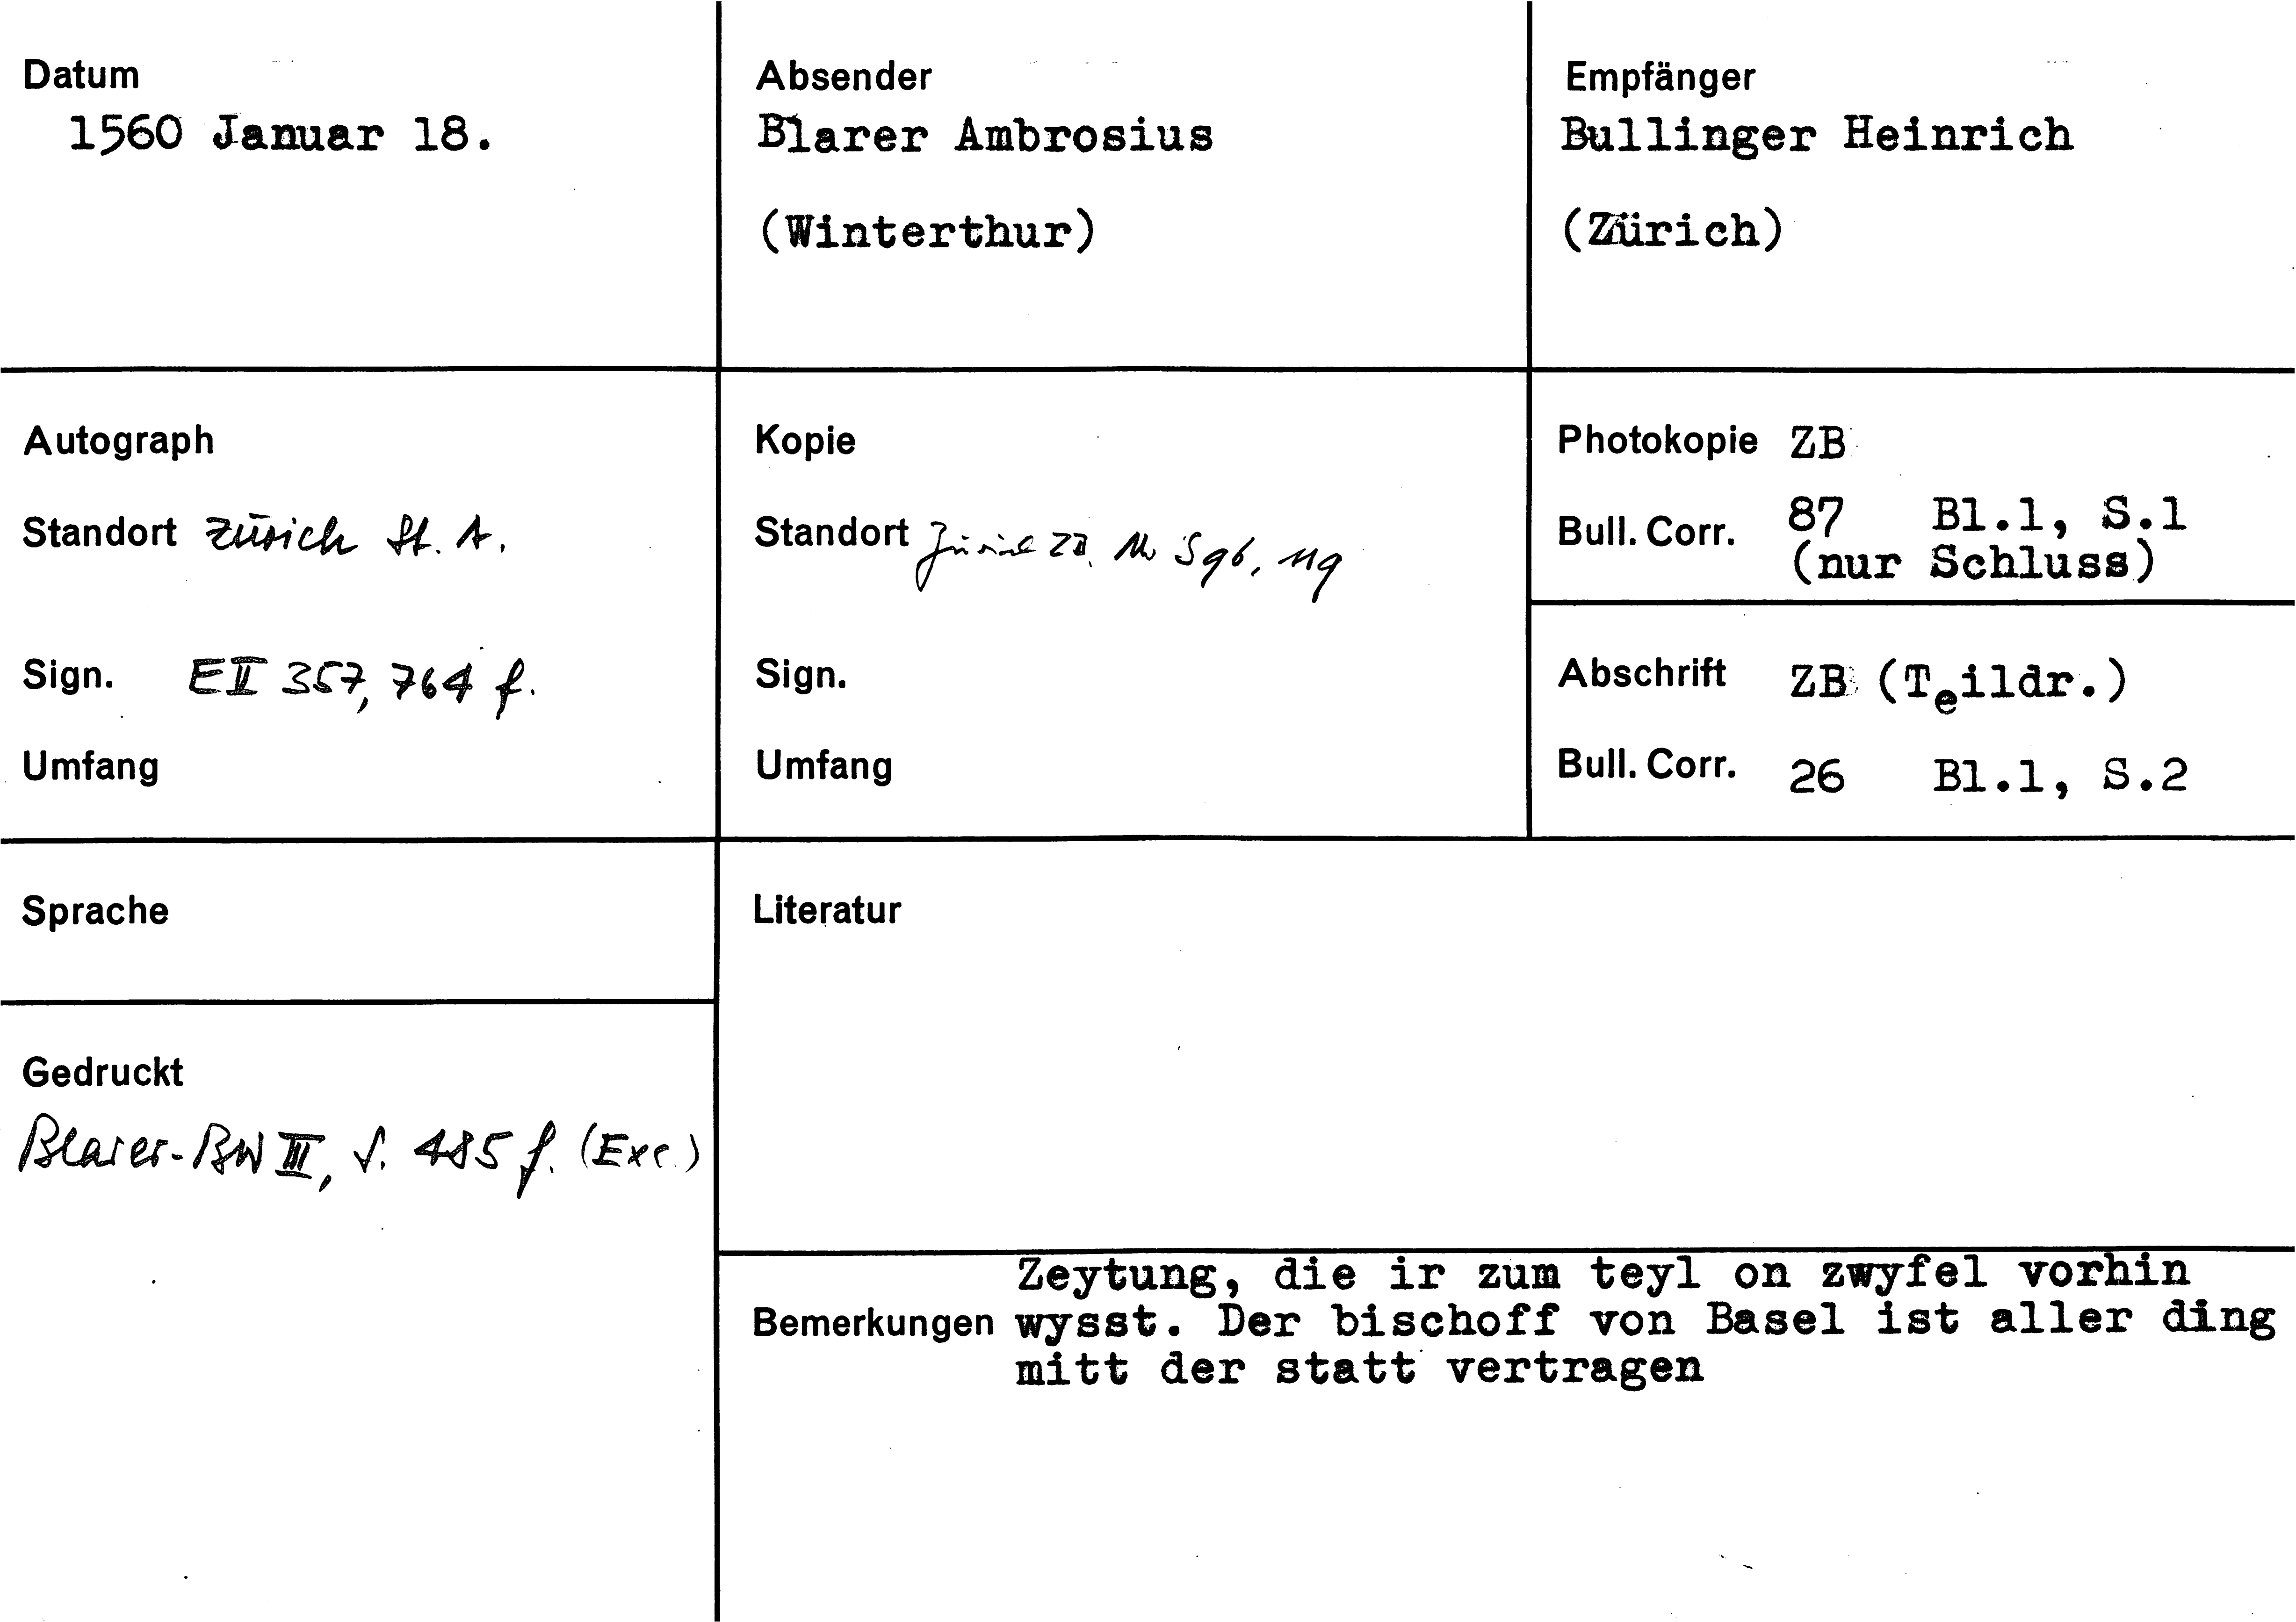 Datum
1560 Januar 18.
Absender
Blarer Ambrosius
(Winterthur)
Empfänger
Bullinger Heinrich
(Zürich)
Autograph
Standort Zürich St. A.
Sign. E II 357, 764 f.
Umfang
Kopie
Standort Zürich ZB, Ms S 96, 119
Sign.
Umfang
Photokopie ZB
Bull. Corr. 87 Bl.1, S.1
(nur Schluss)
Abschrift ZB (Teildr.)
Bull. Corr. 26 Bl.1, S.2
Sprache
Gedruckt
Blarer-BW III, S. 485 f. (Exc.)
Literatur
Zeytung, die ir zum teyl on zwyfel vorhin
Bemerkungen wysst. Der bischoff von Basel ist aller ding
mitt der statt vertragen